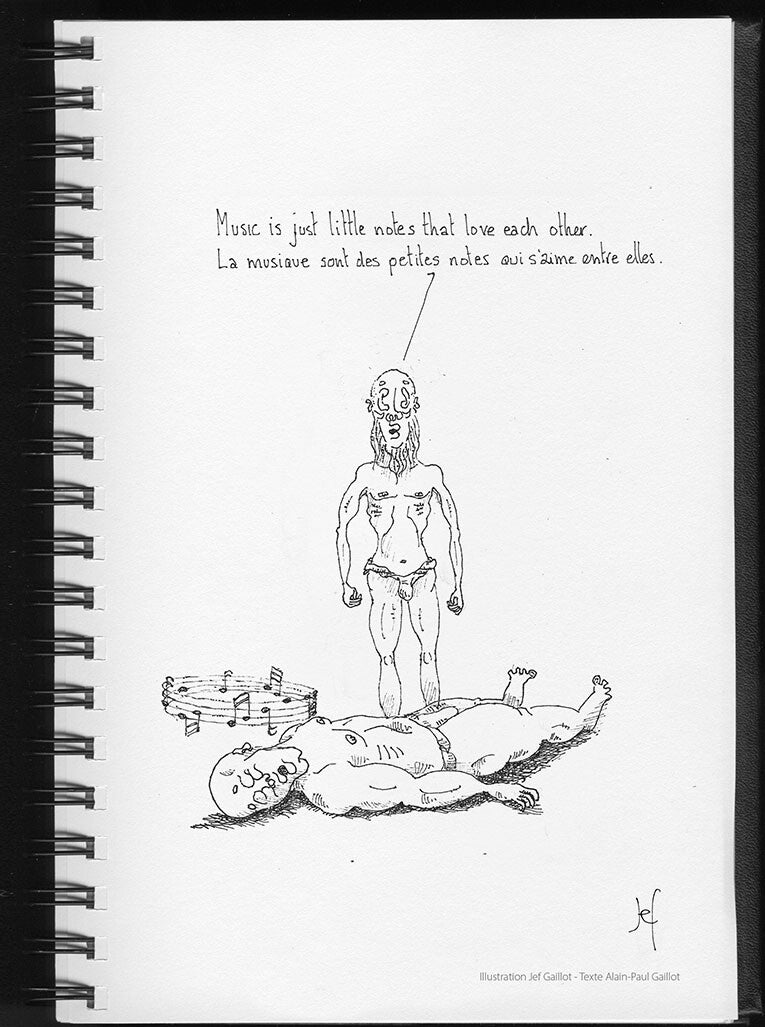 Music is just little notes that love each other.
La musique sont des petites notes qui s'aime entre elles.
Jef
Illustration Jef Gaillot - Texte Alain-Paul Gaillot